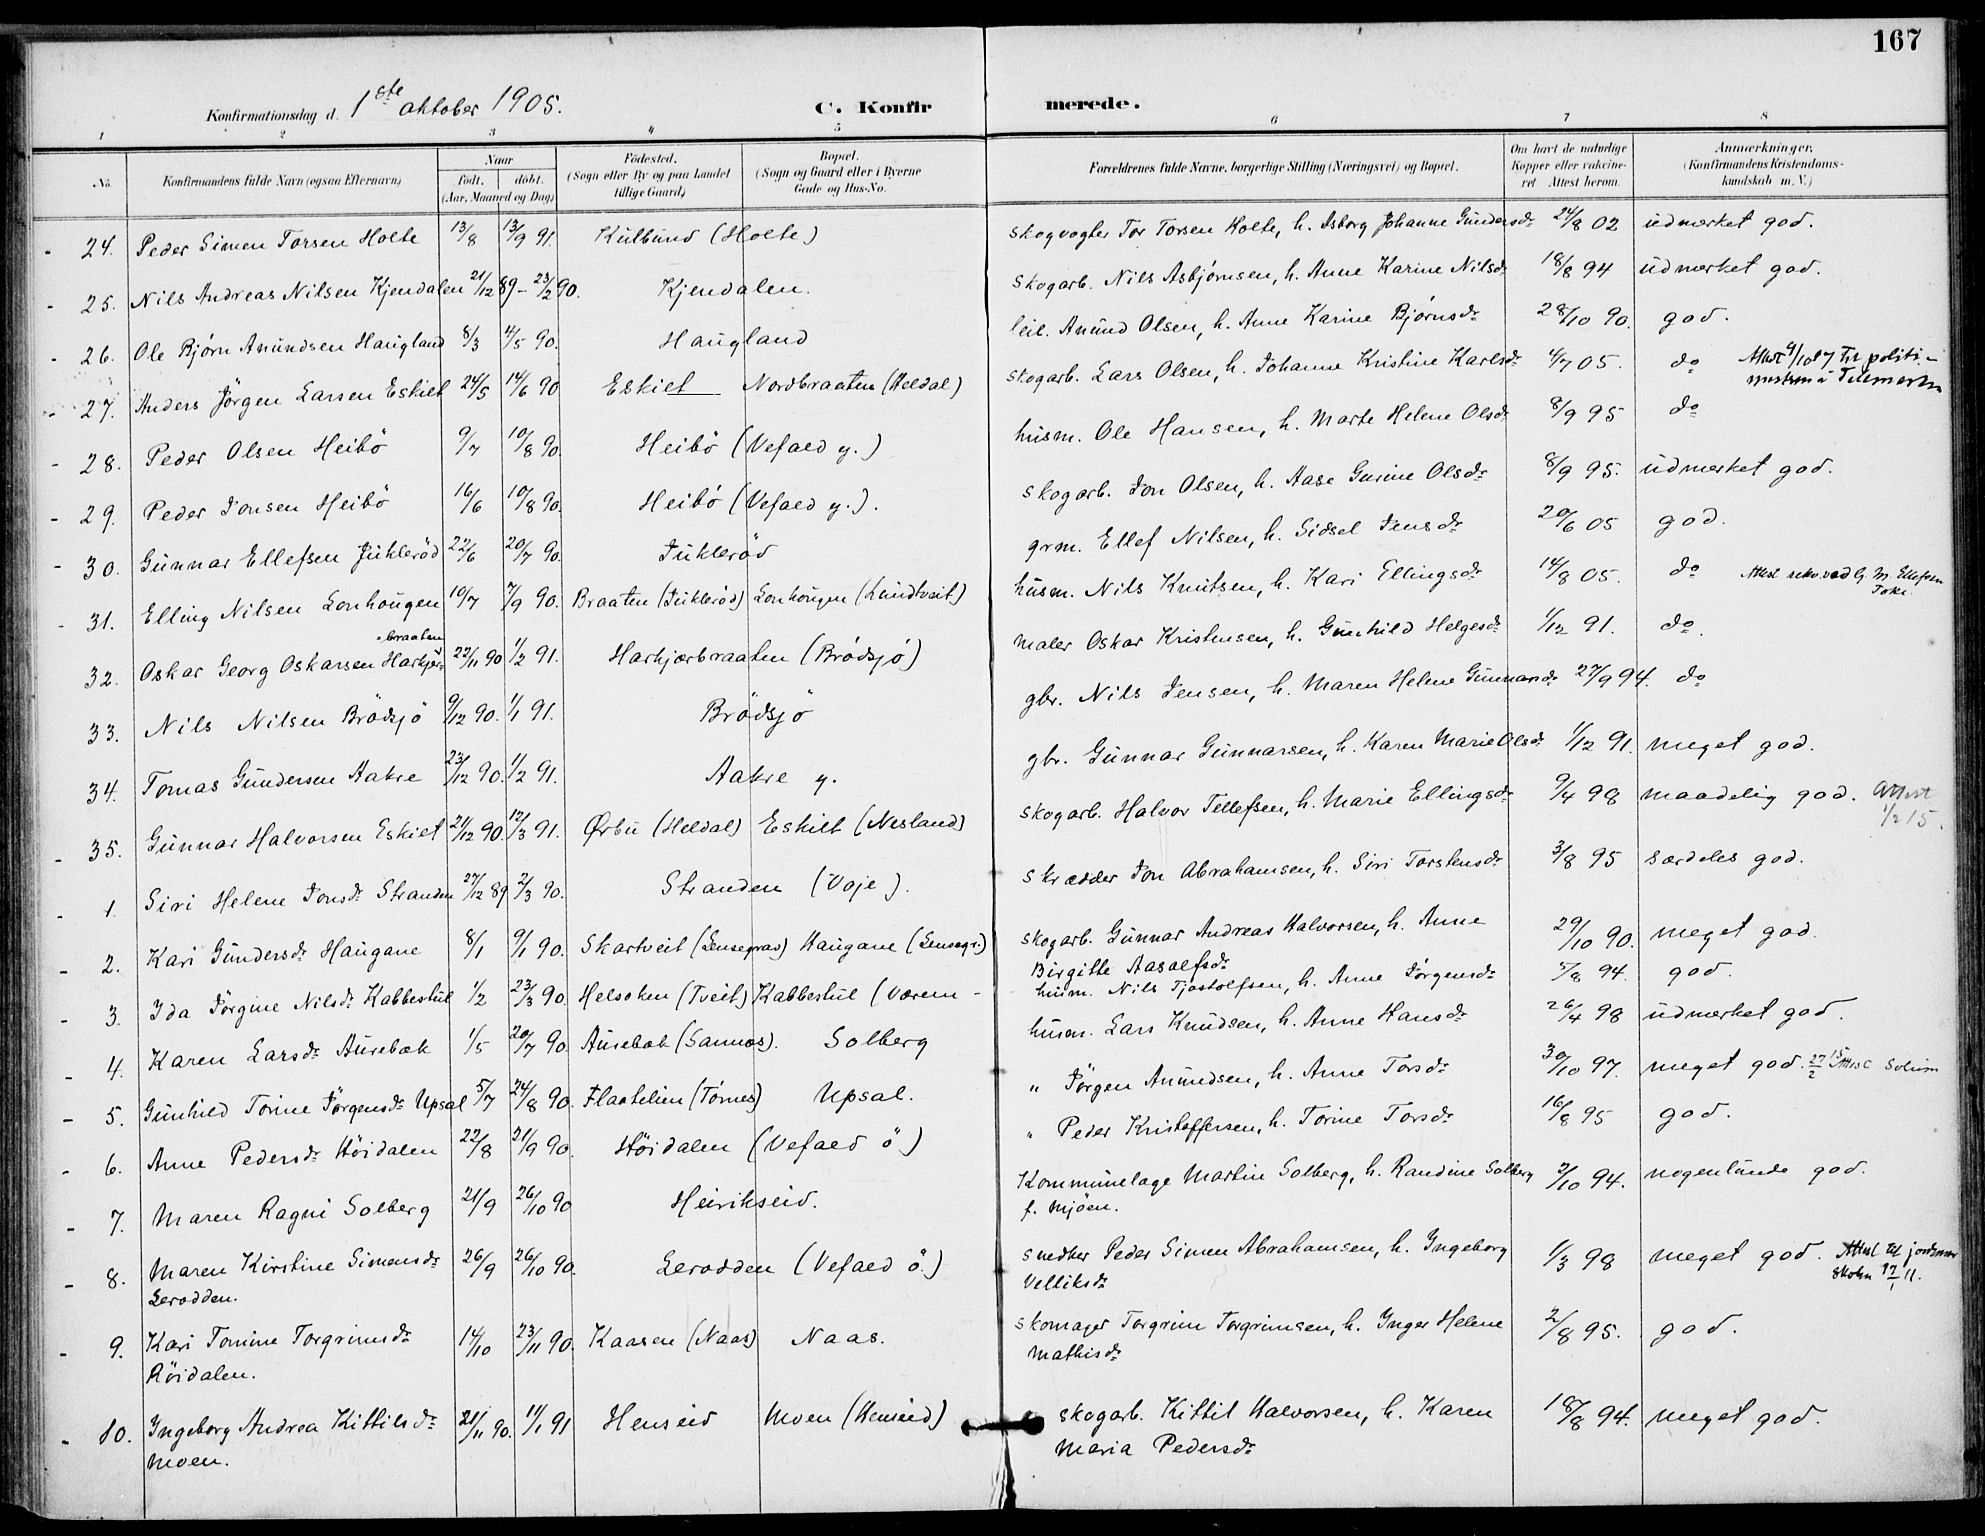 167
Konfirmationsdag d. 1ste oktober 1905. C. Konfirmerede.
1 2 3 4 5 6 7 8
No. Konfirmandens fulde Navn (ogsaa Efternavn) Naar født. døbt. (Aar, Maaned og Dag) Fødested. (Sogn eller By og paa Landet tillige Gaard) Bopæl. (Sogn og Gaard eller i Byerne Gade og Hus-No. Forældrenes fulde Navne, borgerlige Stilling (Næringsvei) og Bopæl. Om havt de naturlige Kopper eller vakcineret. Attest herom. Anmærkninger, (Konfirmandens Kristendomskundskab m. V.)
- 24. Peder Simen Torsen Holte 13/8 13/9 91. Kilbund (Holte) skogvogter Tor Torsen Holte, h. Asborg Johanne Gundersdr 24/8 02 udmerket god.
- 25. Nils Andreas Nilsen Kjendalen 21/12 89 - 23/2 90. Kjendalen. skogarb. Nils Asbjørnsen, h. Anne Karine Nilsdr 18/8 94 udmerket god.
- 26. Ole Bjørn Anundsen Haugland 8/3 4/5 90. Haugland leil. Anund Olsen, h. Anne Karine Bjørnsdr 28/10 90. god.
- 27. Anders Jörgen Larsen Eskilt 24/5 14/6 90 Eskilt Nordbraaten (Heldal) skogarb. Lars Olsen, h. Johanne Kristine Karlsdr 4/7 05. do Attest 4/10 17 til politimesteren i Telemarken
- 28. Peder Olsen Heibö 9/7 10/8 90. Heibö (Vefald y.) husm. Ole Hansen, h. Marte Helene Olsdr 8/9 95 do
- 29. Peder Jonsen Heibö 16/6 10/8 90. Heibö (Vefald y.). skogarb. Jon Olsen, h. Aase Gurine Olsdr 8/9 95. udmerket god.
- 30. Gunnar Ellefsen Juklerød 22/6 20/7 90. Juklerød grm. Ellef Nilsen, h. Sidsel Jensdr 20/6 05 god.
- 31. Elling Nilsen Lonhaugen 10/7 7/9 90. Braaten (Juklerød) Lonhougen (Lundtveit) husm. Nils Knutsen, h. Kari Ellingsdr 14/8 05. do Attest rekv. ved G. M. Ellefsen Toke.
- 32. Oskar Georg Oskarsen Harkjær-braaten 22/11 90 1/2 91. Harkjærbraaten (Brödsjö) maler Oskar Kristensen, h. Gunhild Helgesdr 1/12 91. do.
33. Nils Nilsen Brödsjö 9/12 90. 1/1 91. Brödsjö gbr. Nils Jensen, h. Maren Helene Gunnarsdr 27/9 94. do
34. Tomas Gundersen Aakre 23/12 90. 1/2 91. Aakre y. gbr. Gunnar Gunnarsen, h. Karen Marie Olsdr 1/12 91. meget god.
- 35. Gunnar Halvorsen Eskilt 21/12 90. 12/3 91. Ørbu (Heldal) Eskilt (Nesland) skogarb. Halvor Tellefsen, h. Marie Ellingsdr 9/4 98 maadelig god. Attest 1/2 15.
- 1. Siri Helene Jonsdr Stranden 27/12 89 2/3 90. Stranden (Voje). skrædder Jon Abrahamsen, h. Siri Torstensdr 3/8 95 særdeles god.
- 2. Kari Gundersdr Haugane 8/1 9/1 90. Skartveit (Sensegrav) Haugane (Sensegr.) skogarb. Gunnar Andreas Halvorsen, h. Anne Birgitte Aasolfsdr 29/10 90. meget god.
- 3. Ida Jörgine Nilsdr Kabbestul 1/2 23/3 90. Helsoken (Tveit) Kabbestul (Værem - husm. Nils Tjostolfsen, h. Anne Jörgensdr 5/8 94. god.
- 4. Karen Larsdr Ausebak 1/5 20/7 90. Ausebak (Sannes). Solberg husm. Lars Knudsen, h. Anne Hansdr 26/4 98 udmerket god.
- 5. Gunhild Torine Jörgensdr Upsal 5/7 24/8 90. Flaatelien (Törnes) Upsal. " Jörgen Anundsen, h. Anne Torsdr 30/10 97. meget god. 27/2 15 Attest Solum
- 6. Anne Pedersdr Höidalen 22/8 21/9 90. Höidalen (Vefald ö) " Peder Kristoffersen, h. Torine Torsdr 16/8 95 god.
- 7. Maren Ragni Solberg 21/9 26/10 90 Heirikseid. Kommunelæge Martin Solberg, h. Randine Solberg f. Mjöen. 3/10 94. nogenlunde god.
- 8. Maren Kirstine Simensdr Lerodden. 26/9 26/10 90. Lerodden (Vefald ö.) snedker Peder Simen Abrahamsen, h. Ingeborg Velliksdr 1/3 98 meget god. Attest til jordmorskolen 17/1 11.
- 9. Kari Tomine Torgrimsdr Röidalen. 14/10 23/11 90. Kaasen (Naas) Naas. skomager Torgrim Torgrimsen, h. Inger Helene Mathisdr 2/8 95. god.
- 10. Ingeborg Andrea Kittilsdr Moen. 21/11 90. 11/1 91 Henseid Moen (Henseid) skogarb. Kittil Halvorsen, h. Karen Maria Pedersdr 18/8 94. meget god.